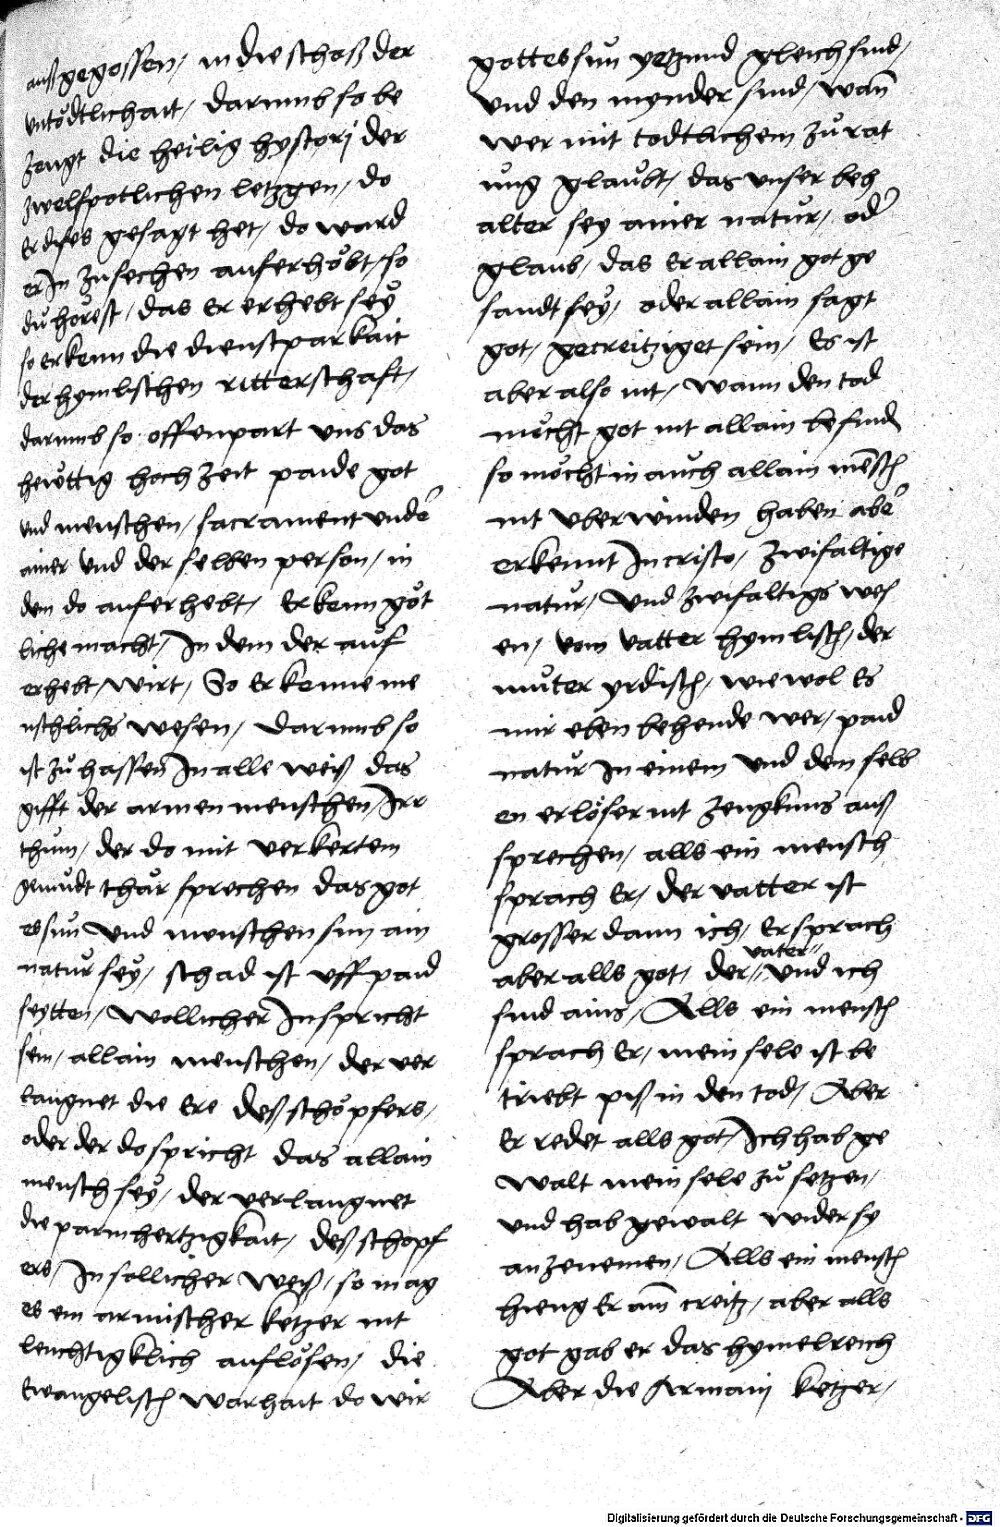 auß gegossen, in die schoß der
untödtlichait, darumb so be
zeugt die heilig hystorj der
zwelfpotlichen letzgen, do
er dises gesagt het, do ward
er In zusechen auferhöbt, so
du hörest, das Er erhebt seÿ
so erkenn die dienstparkait
der hymlischen ritterschaft,
darumb so offenpart uns das
hewttig hoch zeit paide got
und menschen, sacrament under
ainer und der selben person, in
dem do auferhebt, Erkenn göt
liche macht, In dem der auf
erhebt, wirt, So Erkenne me
nschlichs wesen, darumb so
ist zu hassen In alle weiß das
gifft der armen menschen, Irr
thum, der do mit verkertem
gemudt thar sprechen das got
es sun und menschen sun ain
natur seÿ, schad ist uff paid
seytten, wollicher In spricht
sein, allain menschen, der ver
laugnet die Ere deß schöpfers,
oder der do spricht das allain
mensch seÿ, der verlaugnet
die parmhertzigkait, deß schopf
ers, In sollicher weiß, so mag
es ein armischer ketzer nit
leuchtigklich auflösen, die
Ewangelisch warhait do wir
gottes sun yetzund gleich sind,
und den mynder sind, wann
wer mit todtlichem zu rat
ung glaubt, das unser beh
alter sey ainer natur, oder
glaub, das Er allain got ge
sandt seÿ, oder allain sagt
got, gecreitziget sein, Es ist
aber also nit, wann den tod
möcht got nit allain befinden
so möcht in auch allain mensch
nit uberwinden haben aber
erkennt In cristo, zwifaltige
natur, und zwifaltigs wes
en, vom vatter hymlisch, der
muter yrdisch, wie wol Es
mir eben behende wer, paid
natur In einem und dem selb
en erlöser mit zeugknus auß
sprechen, alls ein mensch
sprach Er, der vatter ist
grosser dann ich, Er sprach
aber alls got, der vater und ich
sind ains, Alls ein mensch
sprach Er, mein sele ist be
triebt piß in den tod, Aber
Er redet alls got, Ich hab ge
walt mein sele zu setzen,
und hab gewalt wider sy
an zenemen, Alls ein mensch
hieng Er am creitz, aber alls
got gab er das hymelreich
Aber die Armain ketzer,
Digitalisierung gefördert durch die Deutsche Forschungsgemeinschaft - DFG